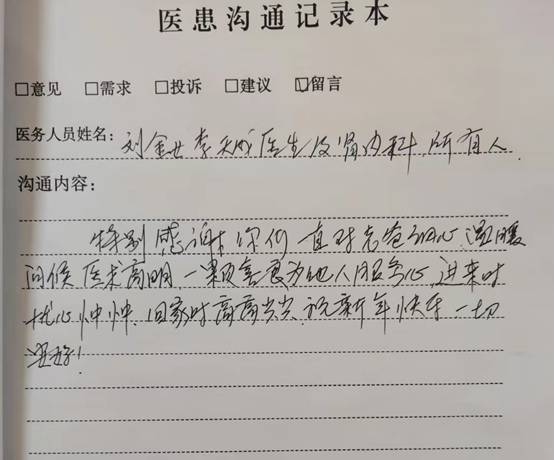 医患沟通记录本
□意见 □需求 □投诉 □建议 ☑留言
医务人员姓名：刘金世 李天成医生及肾内科所有人
沟通内容：
特别感谢你们一直对老爸细心、温暖
问候 医术高明 一颗善良为他人服务心 进来时
忧心忡忡 回家时高高兴兴 祝新年快乐 一切
！